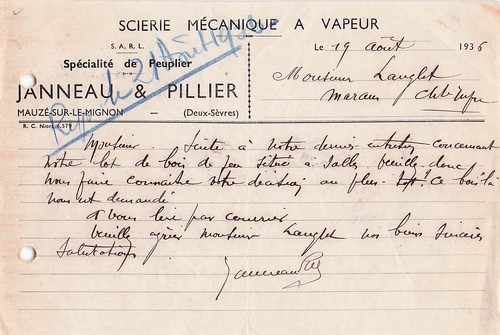 SCIERIE MÉCANIQUE A VAPEUR
S. A. R. L.
Spécialité de Peuplier
JANNEAU & PILLIER
MAUZÉ-SUR-LE-MIGNON — (Deux-Sèvres)
R. C. Niort 6.579
Le 19 août 1936
Monsieur Langlet
Marans Ch. Infre
Rép. le 21 Août
Monsieur. Suite à notre dernier entretien concernant
votre lot de bois de situé à veuillez donc
nous faire connaitre votre décision au plus ce bois là
nous est demandé
A vous lire par courrier
Veuillez agréer Monsieur Langlet nos bien sincères
Salutations